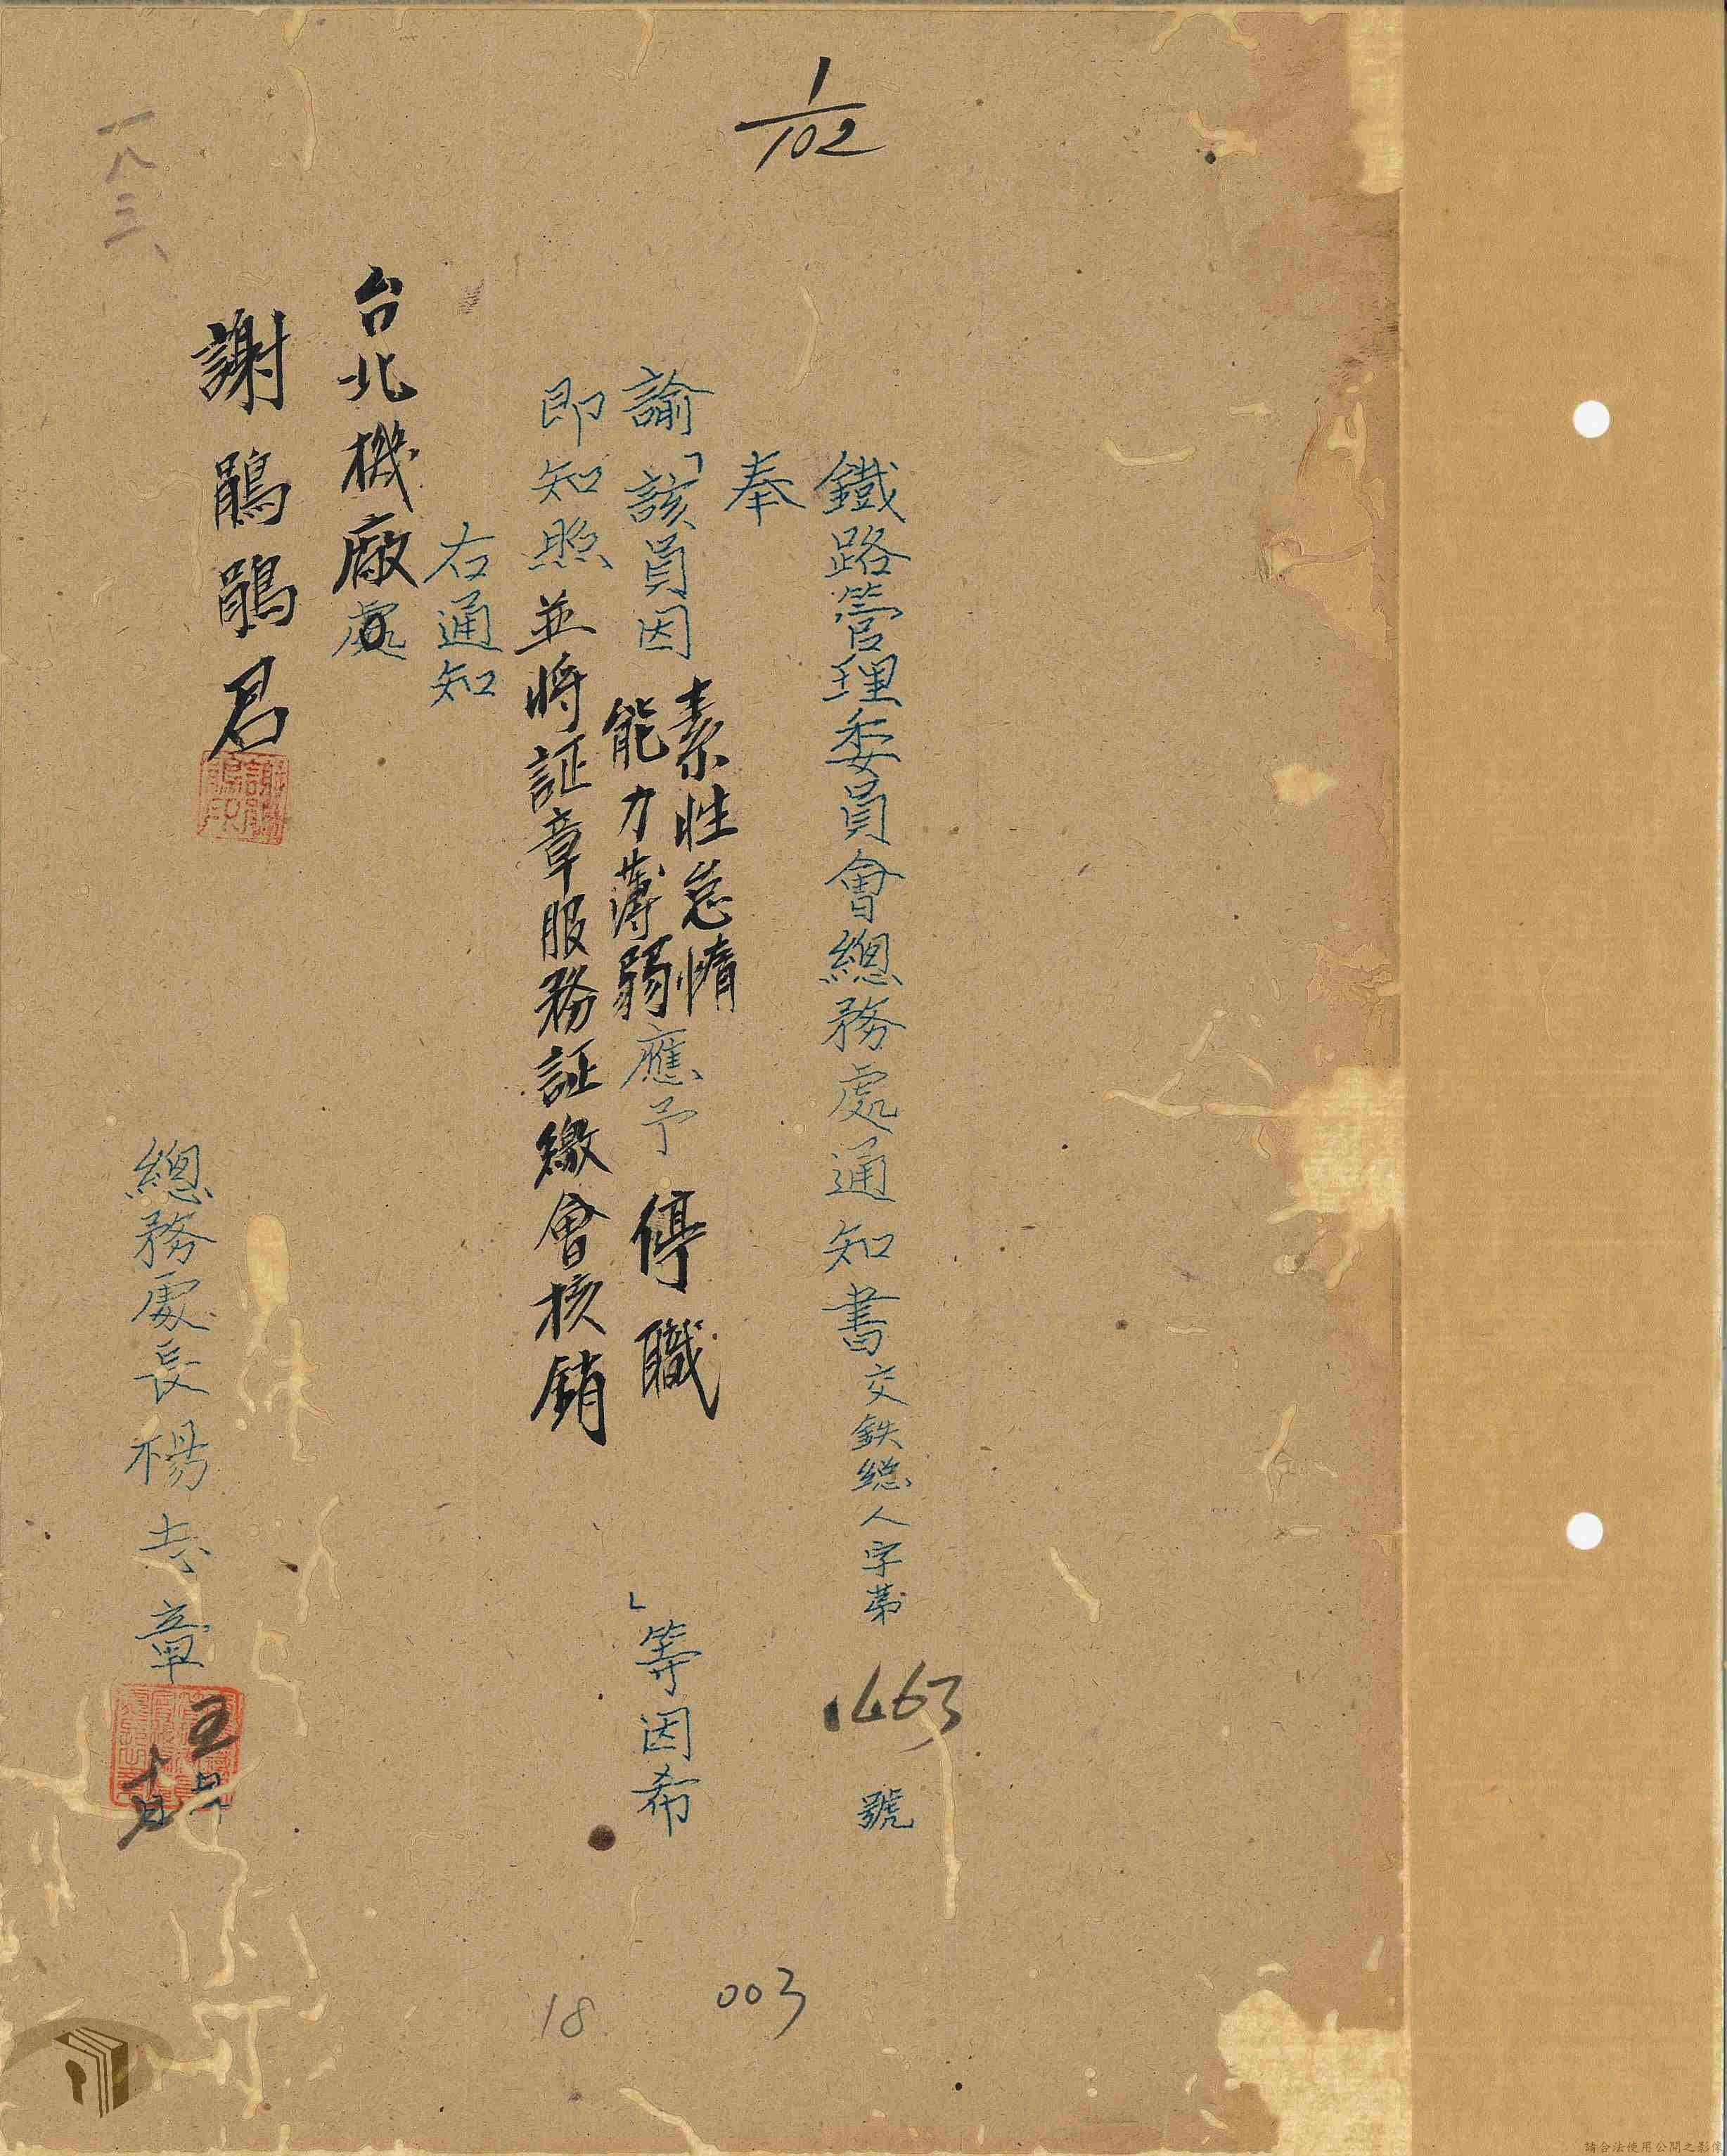 1/102
鐵路管理委員會總務處通知書交鉄総人字第1463號
奉
諭「該員因素性怠惰能力薄弱應予停職」等因希
即知照並將証章服務証繳會核銷
右通知
台北機廠處
謝鵑鵑君
謝鵑鵑印
總務處長楊志章
一八三、
003
18
請合法使用公開之影像